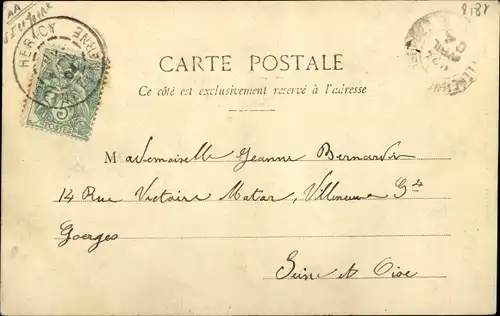 AA
2187
HERICY
MARNE
CARTE POSTALE
Ce côté est exclusivement reservé à l'adresse
Mademoiselle Jeanne Bernardin
14 Rue Victoire Matar, Villeneuve St
Goerges
Seine et Oise
5
POSTES